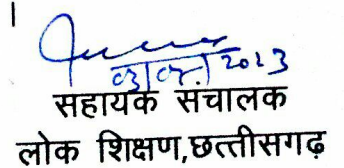 सहायक संचालक
लोक शिक्षण,छत्तीसगढ़